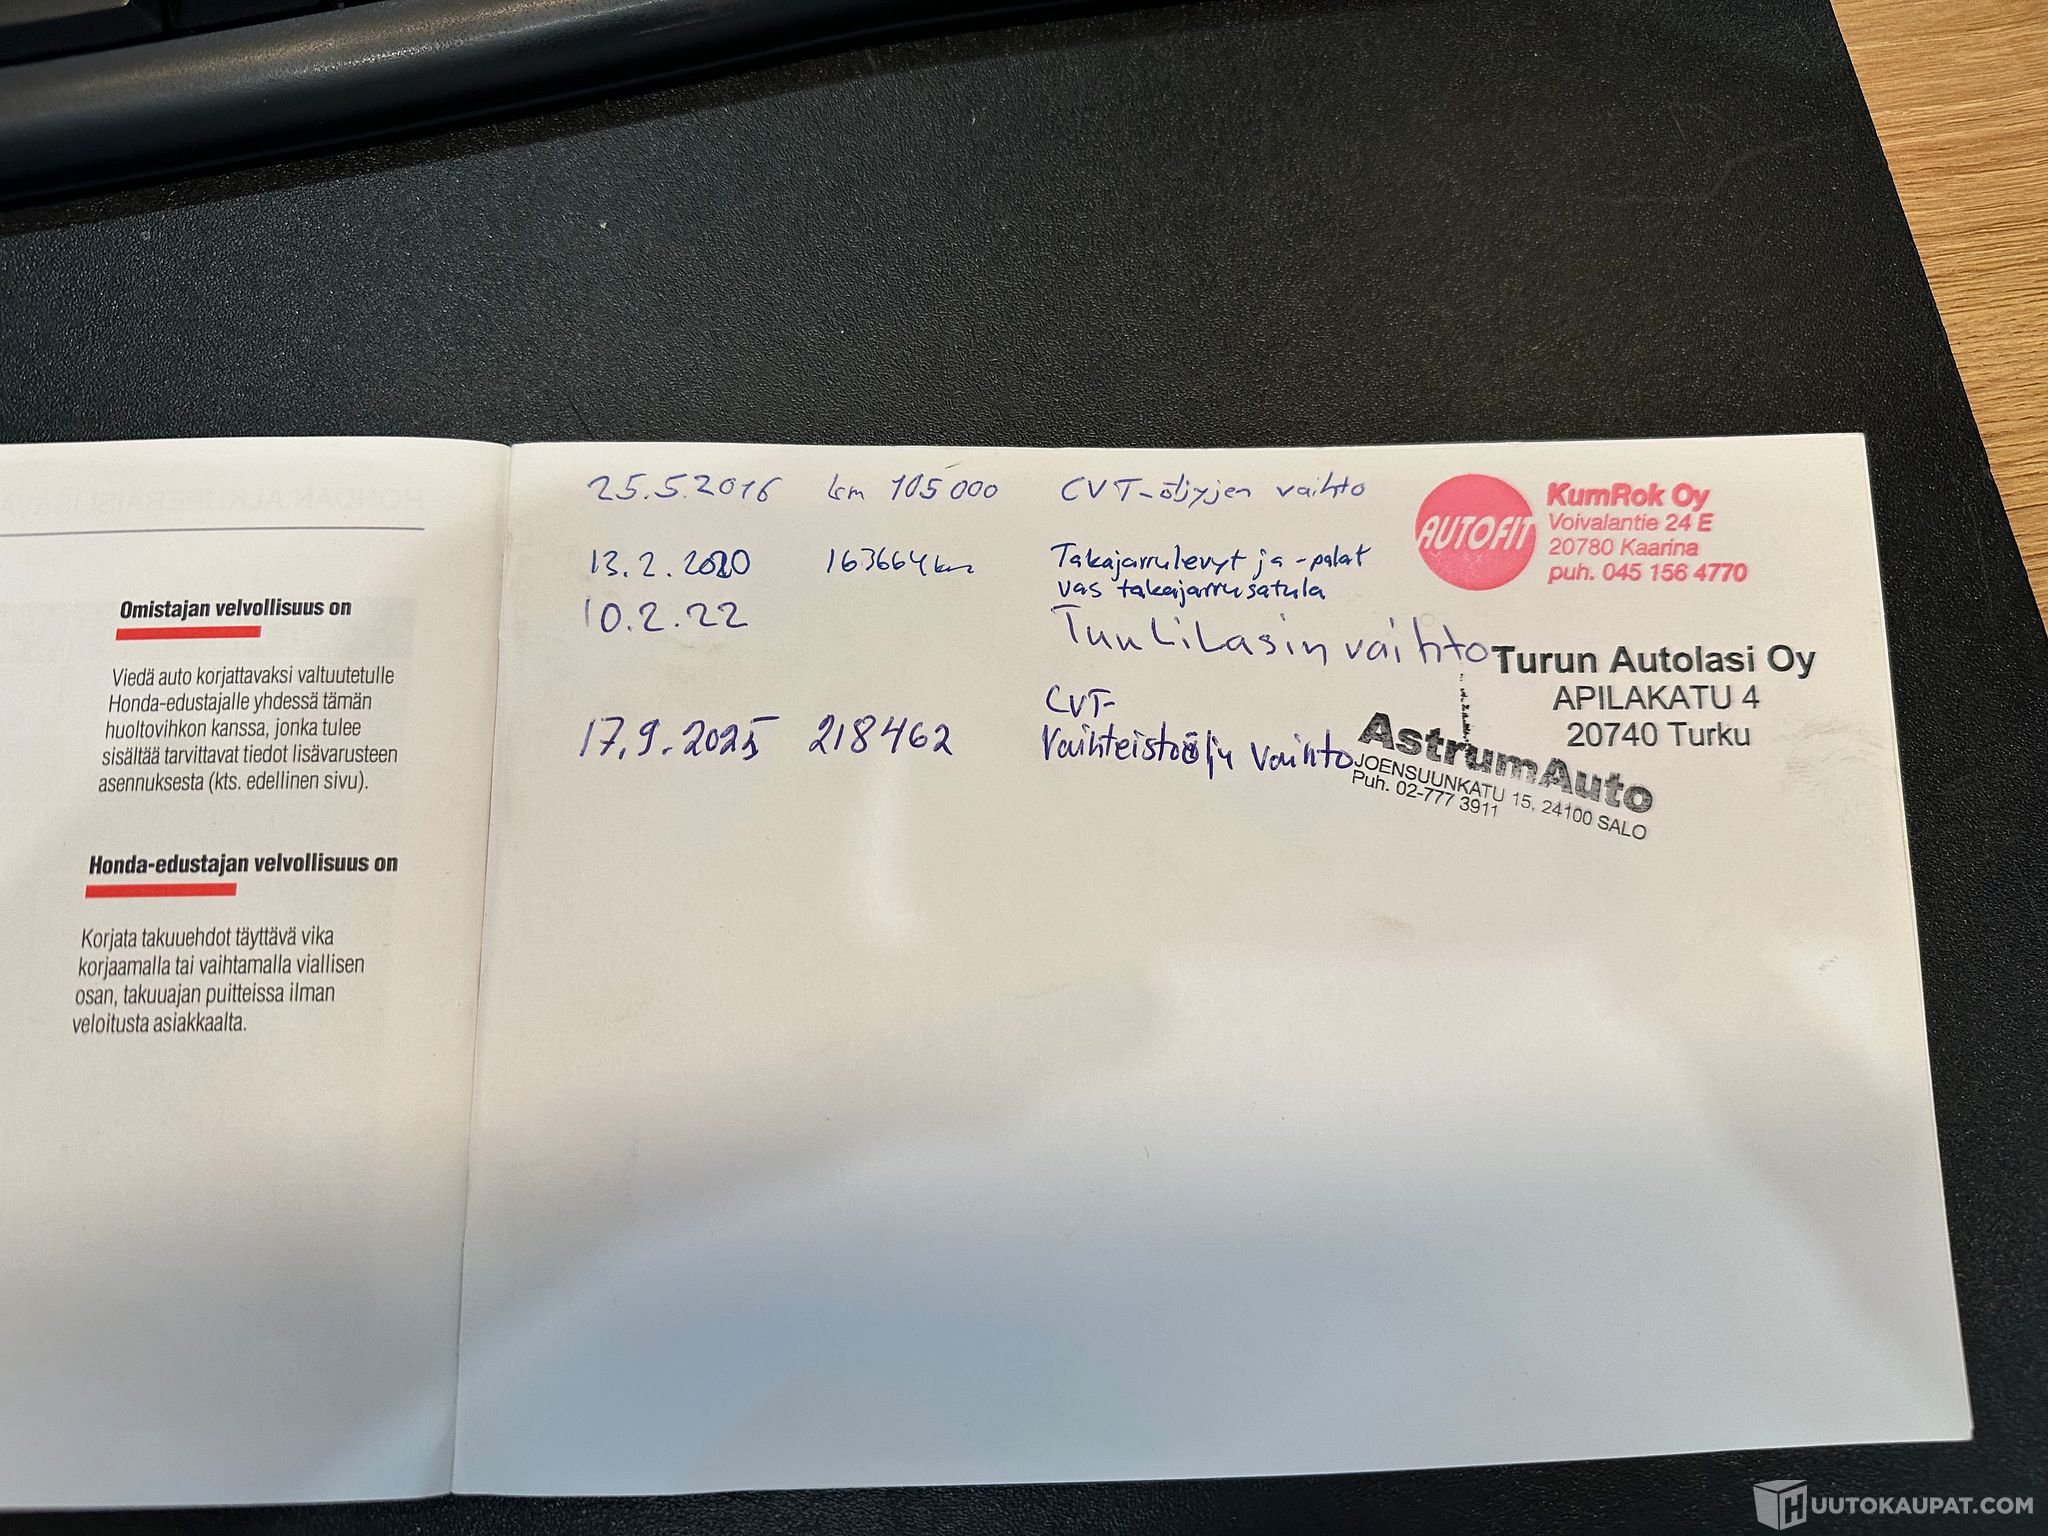 Omistajan velvollisuus on
Viedä auto korjattavaksi valtuutetulle
Honda-edustajalle yhdessä tämän
huoltovihkon kanssa, jonka tulee
sisältää tarvittavat tiedot lisävarusteen
asennuksesta (kts. edellinen sivu).
Honda-edustajan velvollisuus on
Korjata takuuehdot täyttävä vika
korjaamalla tai vaihtamalla viallisen
osan, takuuajan puitteissa ilman
veloitusta asiakkaalta.
25.5.2016 km 105 000 CVT-öljyjen vaihto
13.2.2020 163664 km Takajarrulevyt ja -palat
vas takajarrusatula
10.2.22 Tuulilasin vaihto
CVT-
17.9.2025 218462 Vaihteistoölju Vaihto
AUTOFIT
KumRok Oy
Voivalantie 24 E
20780 Kaarina
puh. 045 156 4770
Turun Autolasi Oy
APILAKATU 4
20740 Turku
AstrumAuto
JOENSUUNKATU 15, 24100 SALO
Puh. 02-777 3911
HUUTOKAUPAT.COM